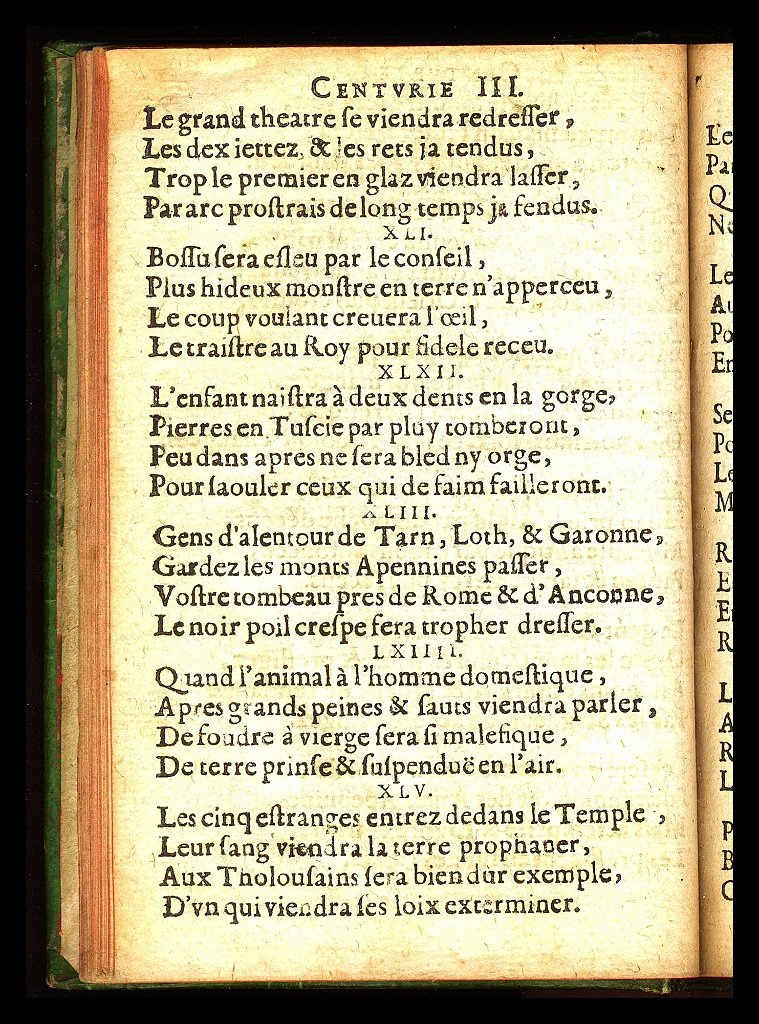 CENTVRIE III.
Le grand theatre ſe viendra redreſſer,
Les dex iettez, & les rets ja tendus,
Trop le premier en glaz viendra laſſer,
Par arc proſtrais de long temps ja fendus.
XLI.
Boſſu ſera eſleu par le conſeil,
Plus hideux monſtre en terre n'apperceu,
Le coup voulant creuera l'œil,
Le traiſtre au Roy pour fidele receu.
XLXII.
L'enfant naiſtra à deux dents en la gorge,
Pierres en Tuſcie par pluy tomberont,
Peu dans apres ne ſera bled ny orge,
Pour ſaouler ceux qui de faim failleront.
XLIII.
Gens d'alentour de Tarn, Loth, & Garonne,
Gardez les monts Apennines paſſer,
Voſtre tombeau pres de Rome & d'Anconne,
Le noir poil creſpe fera tropher dreſſer.
LXIIII.
Quand l'animal à l'homme domeſtique,
Apres grands peines & ſauts viendra parler,
De foudre à vierge ſera ſi malefique,
De terre prinſe & ſuſpenduë en l'air.
XLV.
Les cinq eſtranges entrez dedans le Temple,
Leur ſang viendra la terre prophaner,
Aux Tholouſains ſera bien dur exemple,
D'vn qui viendra ſes loix exterminer.